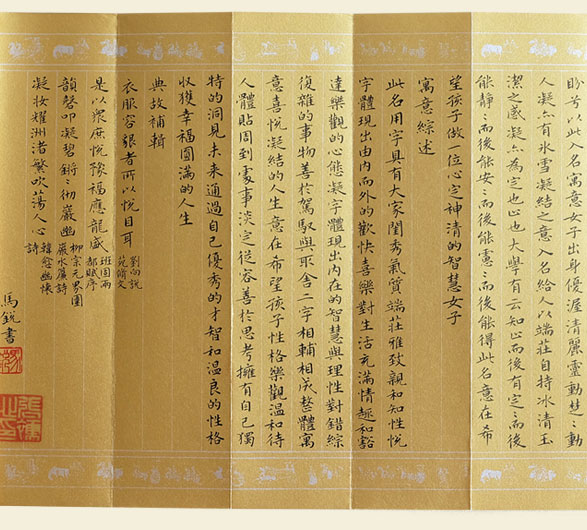 盼芳以此寓意女子出身優渥清麗靈動楚〻動
人凝亦有水雪凝結之意入名給人以端莊自持冰清玉
潔之感凝亦為定也止也大學有云知止而後有定〻而後
能靜〻而後能安〻而後能慮〻而後能得此名意在希
望孩子做一位心定神清的智慧女子
寓意綜述
此名用字具有大家閨秀氣質端莊雅致親和知性悅
字體現出由內而外的歡快喜樂對生活充滿情趣和豁
達樂觀的心態凝字體現出內在的智慧與理性對錯綜
復雜的事物善於駕馭與取舍二字相輔相成整體寓
意喜悅凝結的人生意在希望孩子性格樂觀溫和待
人體貼周到處事淡定從容善於思考擁有自己獨
特的洞見未來通過自己優秀的才智和溫良的性格
收獲幸福圓滿的人生
典故補輯
衣服容貌者所以悅目耳
劉向說
苑脩文
是以眾庶悅豫福應龍盛
班固兩
都賦序
韻磬叩凝碧鏘〻徹巖幽
柳宗元界圍
巖水簾詩
凝妝耀洲渚繁吹蕩人心
韓愈幽懷
詩
馬銳書